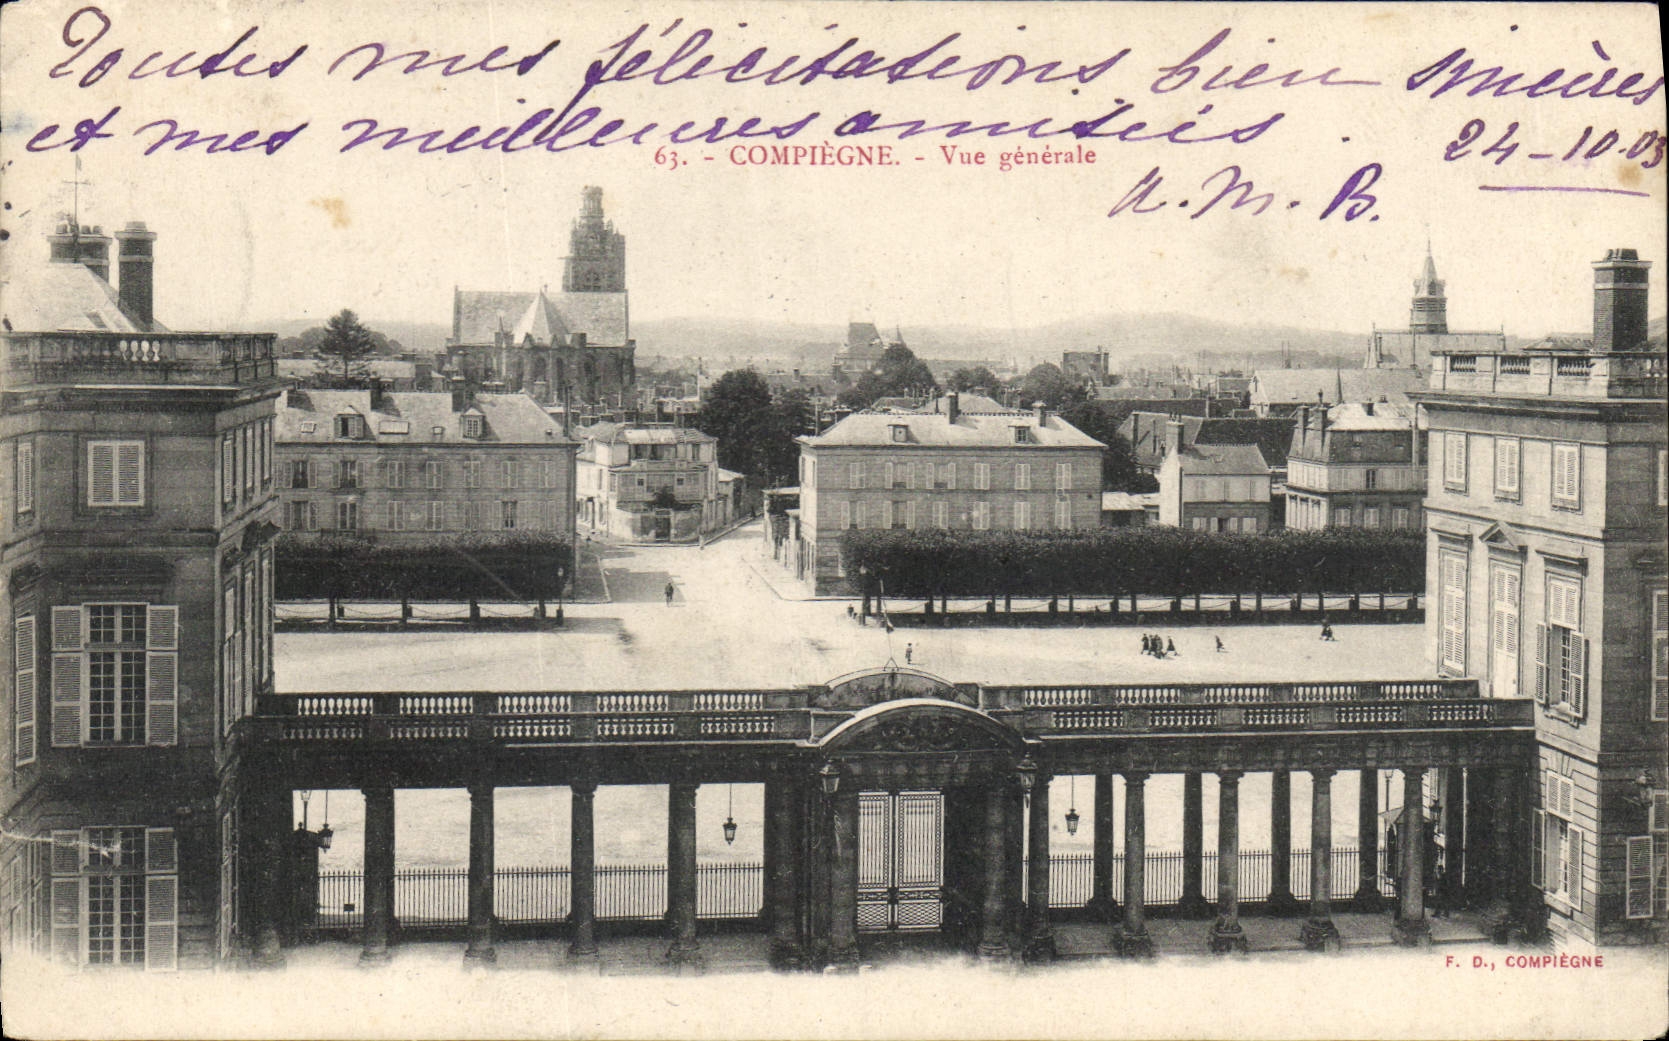 Toutes mes félicitations bien sincères
et mes meilleures amitiés.
24-10.03
63. - COMPIÈGNE. - Vue générale
M. B.
F. D., COMPIÈGNE